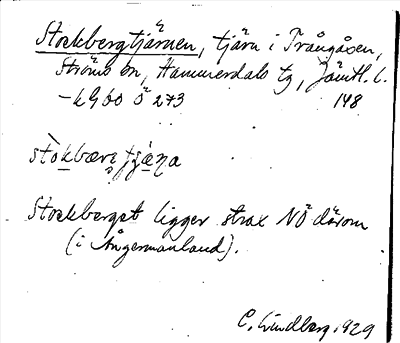 Stockbergtjärnen, tjärn i Trångåsen,
Ströms sn, Hammerdals tg, Jämtl. l.
– k 960 ö 273 148
stòkbærs tjæ̀ṇa
Stockberget ligger strax NÖ därom
(i Ångermanland).
C. Lindberg 1929